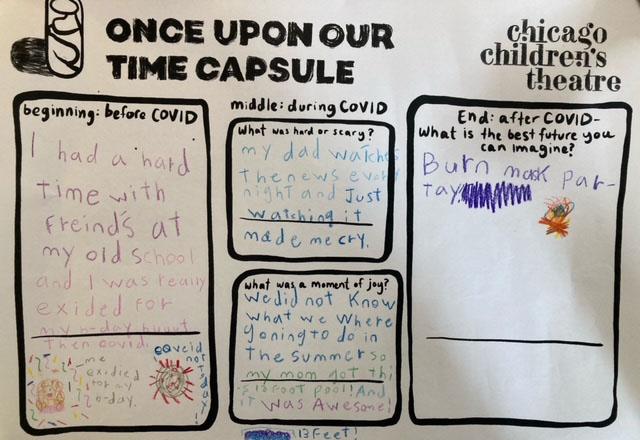 ONCE UPON OUR
TIME CAPSULE
chicago
children's
theatre
beginning: before COVID
I had a hard
time with
freind's at
my old school
and I was really
exided for
my b-day
then covid.
me
exidied
for my
b-day.
coveid
not
today!
middle: during COVID
What was hard or scary?
my dad watches
the news every
night and Just
watching it
made me cry.
what was a moment of joy?
We did not Know
what we where
going to do in
the summer so
my mom got thi
s 13 foot pool! And
it was Awesome!
13 Feet!
End: after COVID-
what is the best future you
can imagine?
Burn mask par-
tay